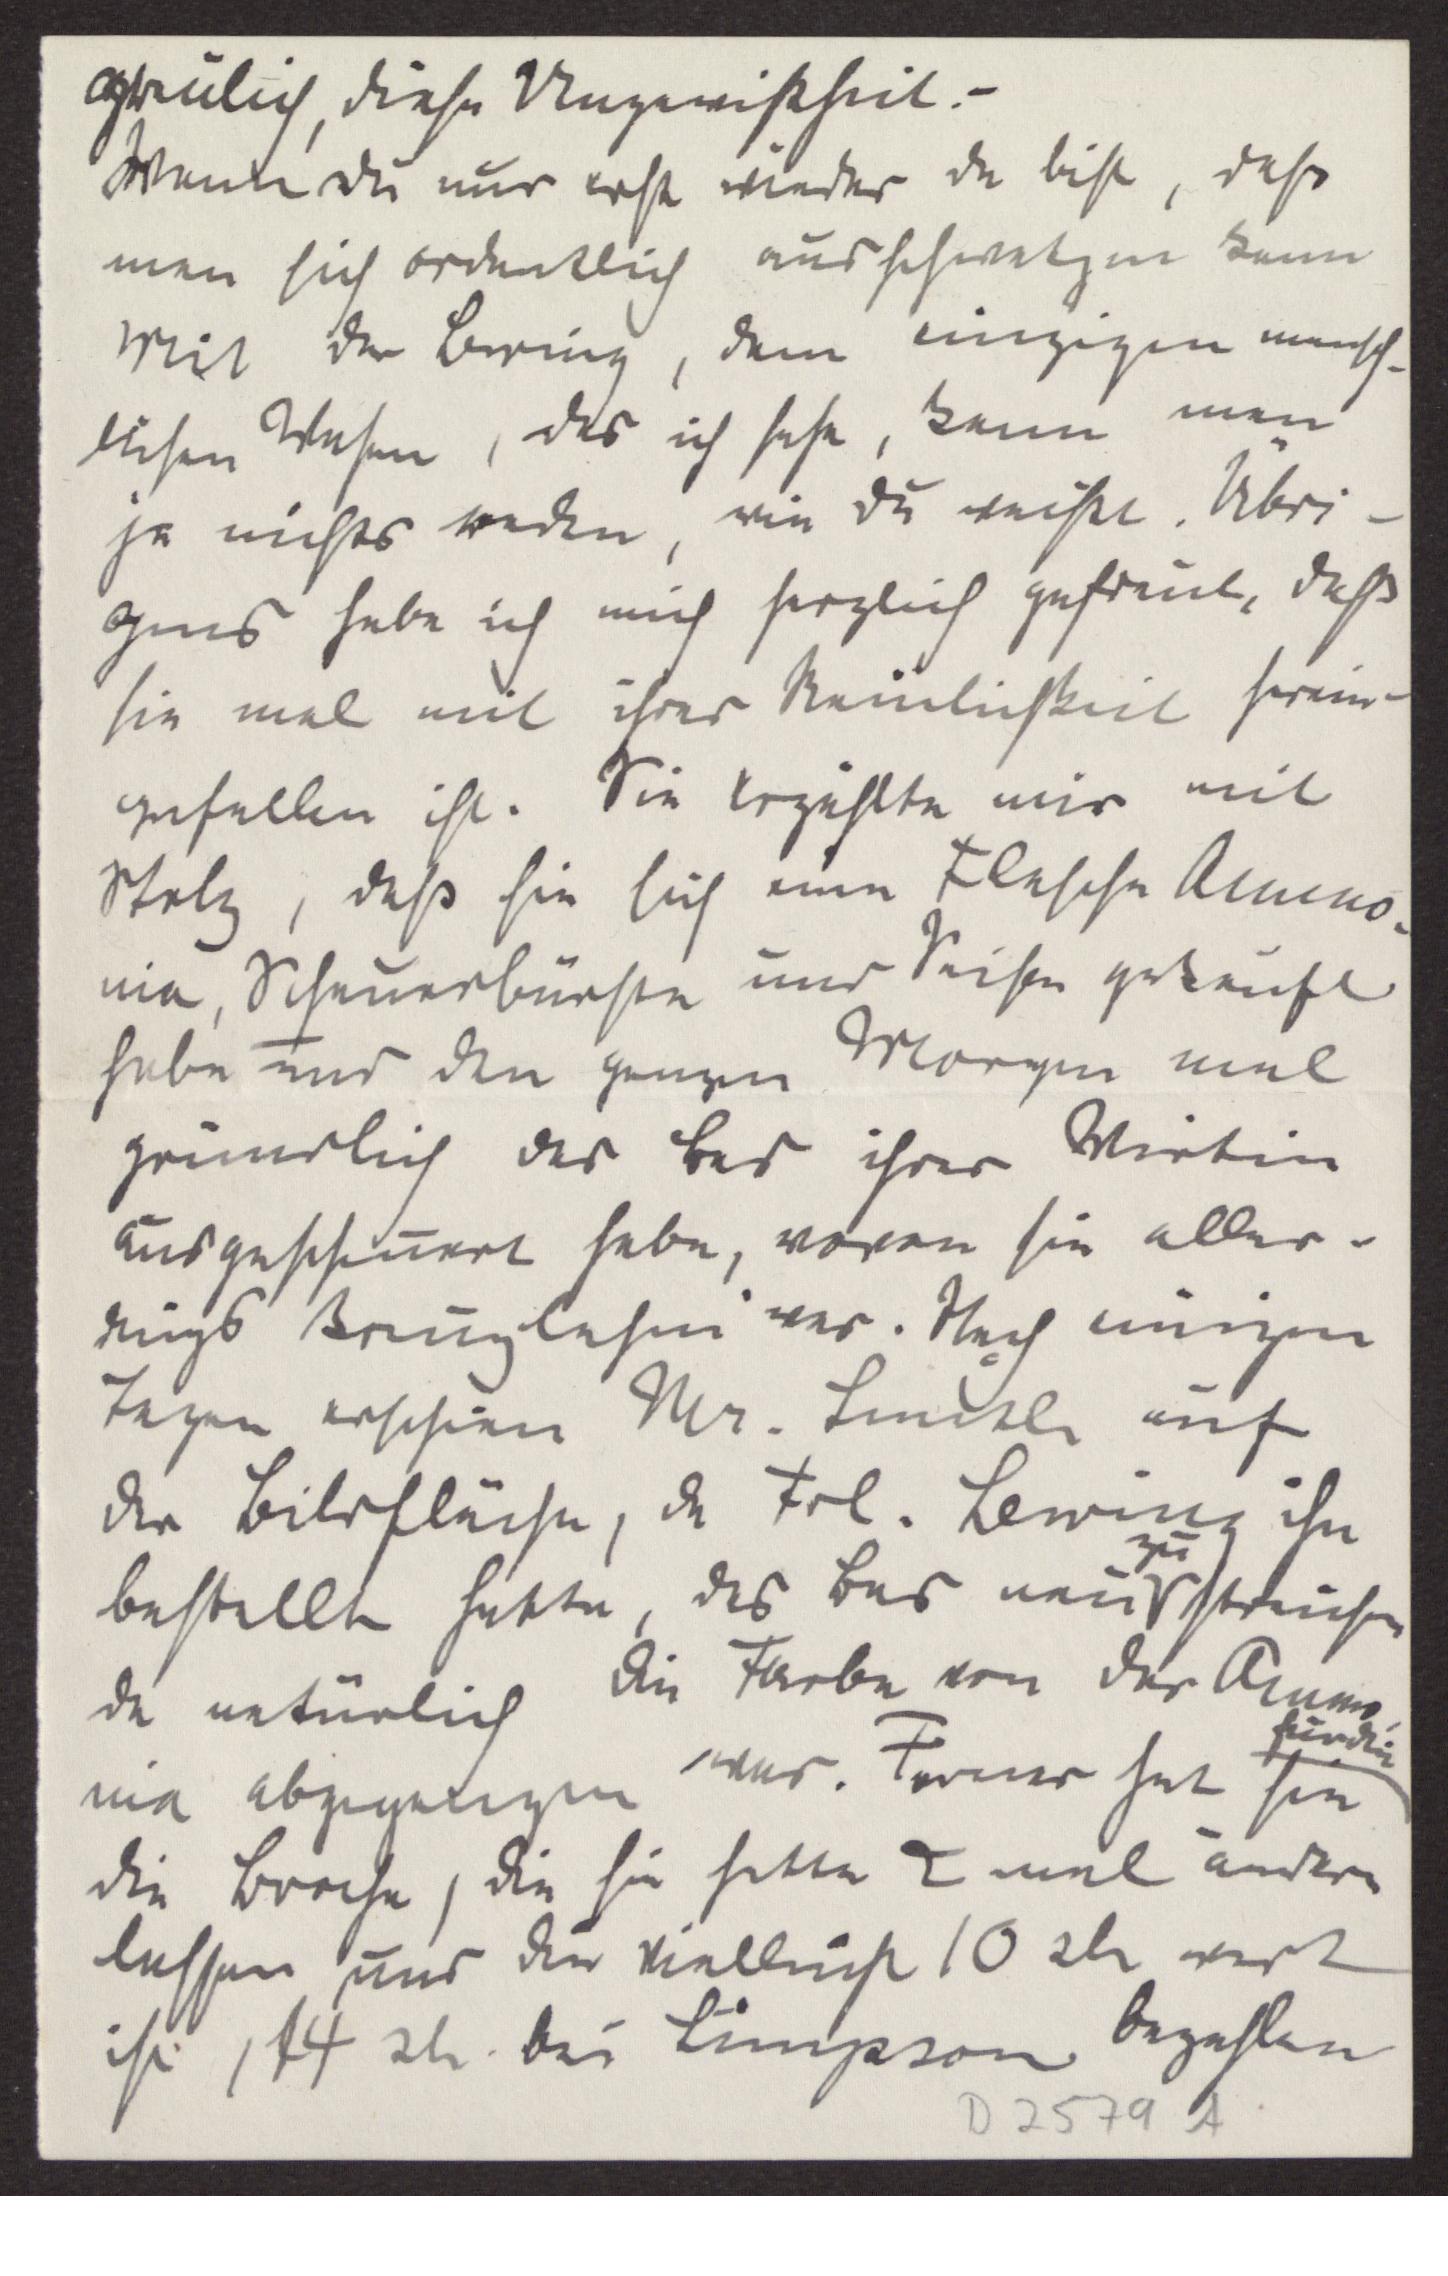 greulich, diese Ungewißheit. –
Wenn du nur erst wieder da bist, daß
man sich ordentlich ausschwatzen kann
Mit der Lewing, dem einzigen mensch-
lichen Wesen, das ich sehe, kann man
ja nichts reden, wie du weißt. Übri-
gens habe ich mich herzlich gefreut, daß
sie mal mit ihrer Reinlichkeit herein-
gefallen ist. Sie erzählte mir mit
Stolz, daß sie sich eine Flasche Ammo-
nia, Scheuerbürste und Seife gekauft
habe und den ganzen Morgen mal
gründlich das Bad ihrer Wirtin
ausgescheuert habe, wovon sie aller-
dings kreuzlahm war. Nach einigen
Tagen erschien Mr. auf
der Bildfläche, da Frl. Lewing ihn
bestellt hatte, das Bad neu zu streichen
da natürlich die Farbe von der Ammo-
nia abgegangen war. Ferner hat sie für die
die Broche, die sie hatte 2 mal ändern
lassen und die vielleicht 10 sh wert
ist, 14 sh. bei Simpson bezahlen
D 2579 A